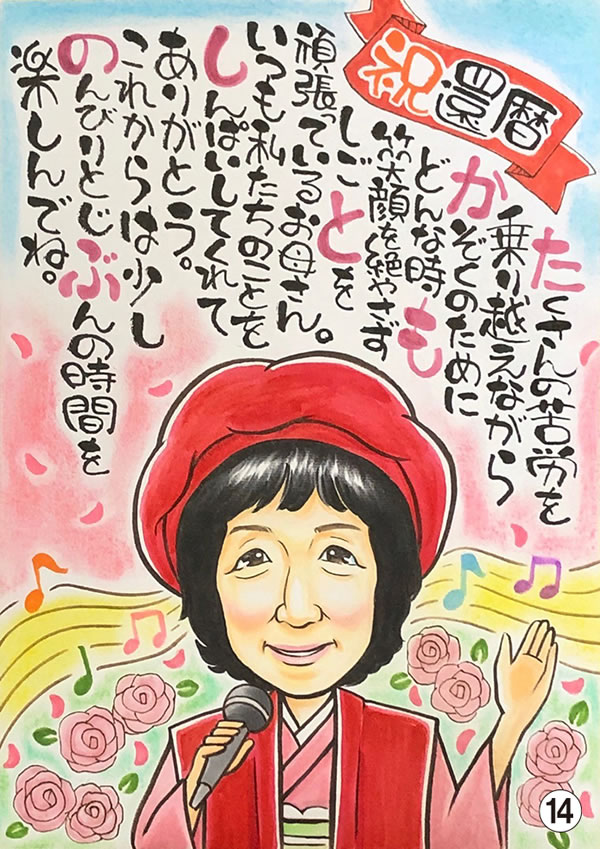 祝還暦
たくさんの苦労を
乗り越えながら
かぞくのために
どんな時も
笑顔を絶やさず
しごとを
頑張っているお母さん。
いつも私たちのことを
しんぱいしてくれて
ありがとう。
これからは少し
のんびりとじぶんの時間を
楽しんでね。
14